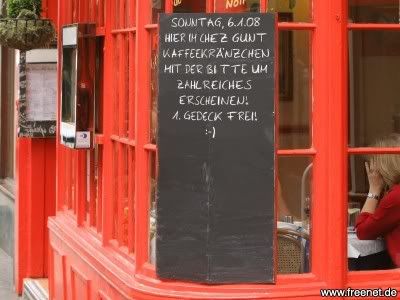 SONNTAG, 6.1.08
HIER IM CHEZ GUNT
KAFFEEKRÄNZCHEN
MIT DER BITTE UM
ZAHLREICHES
ERSCHEINEN!
1. GEDECK FREI!
:-)
www.freenet.de